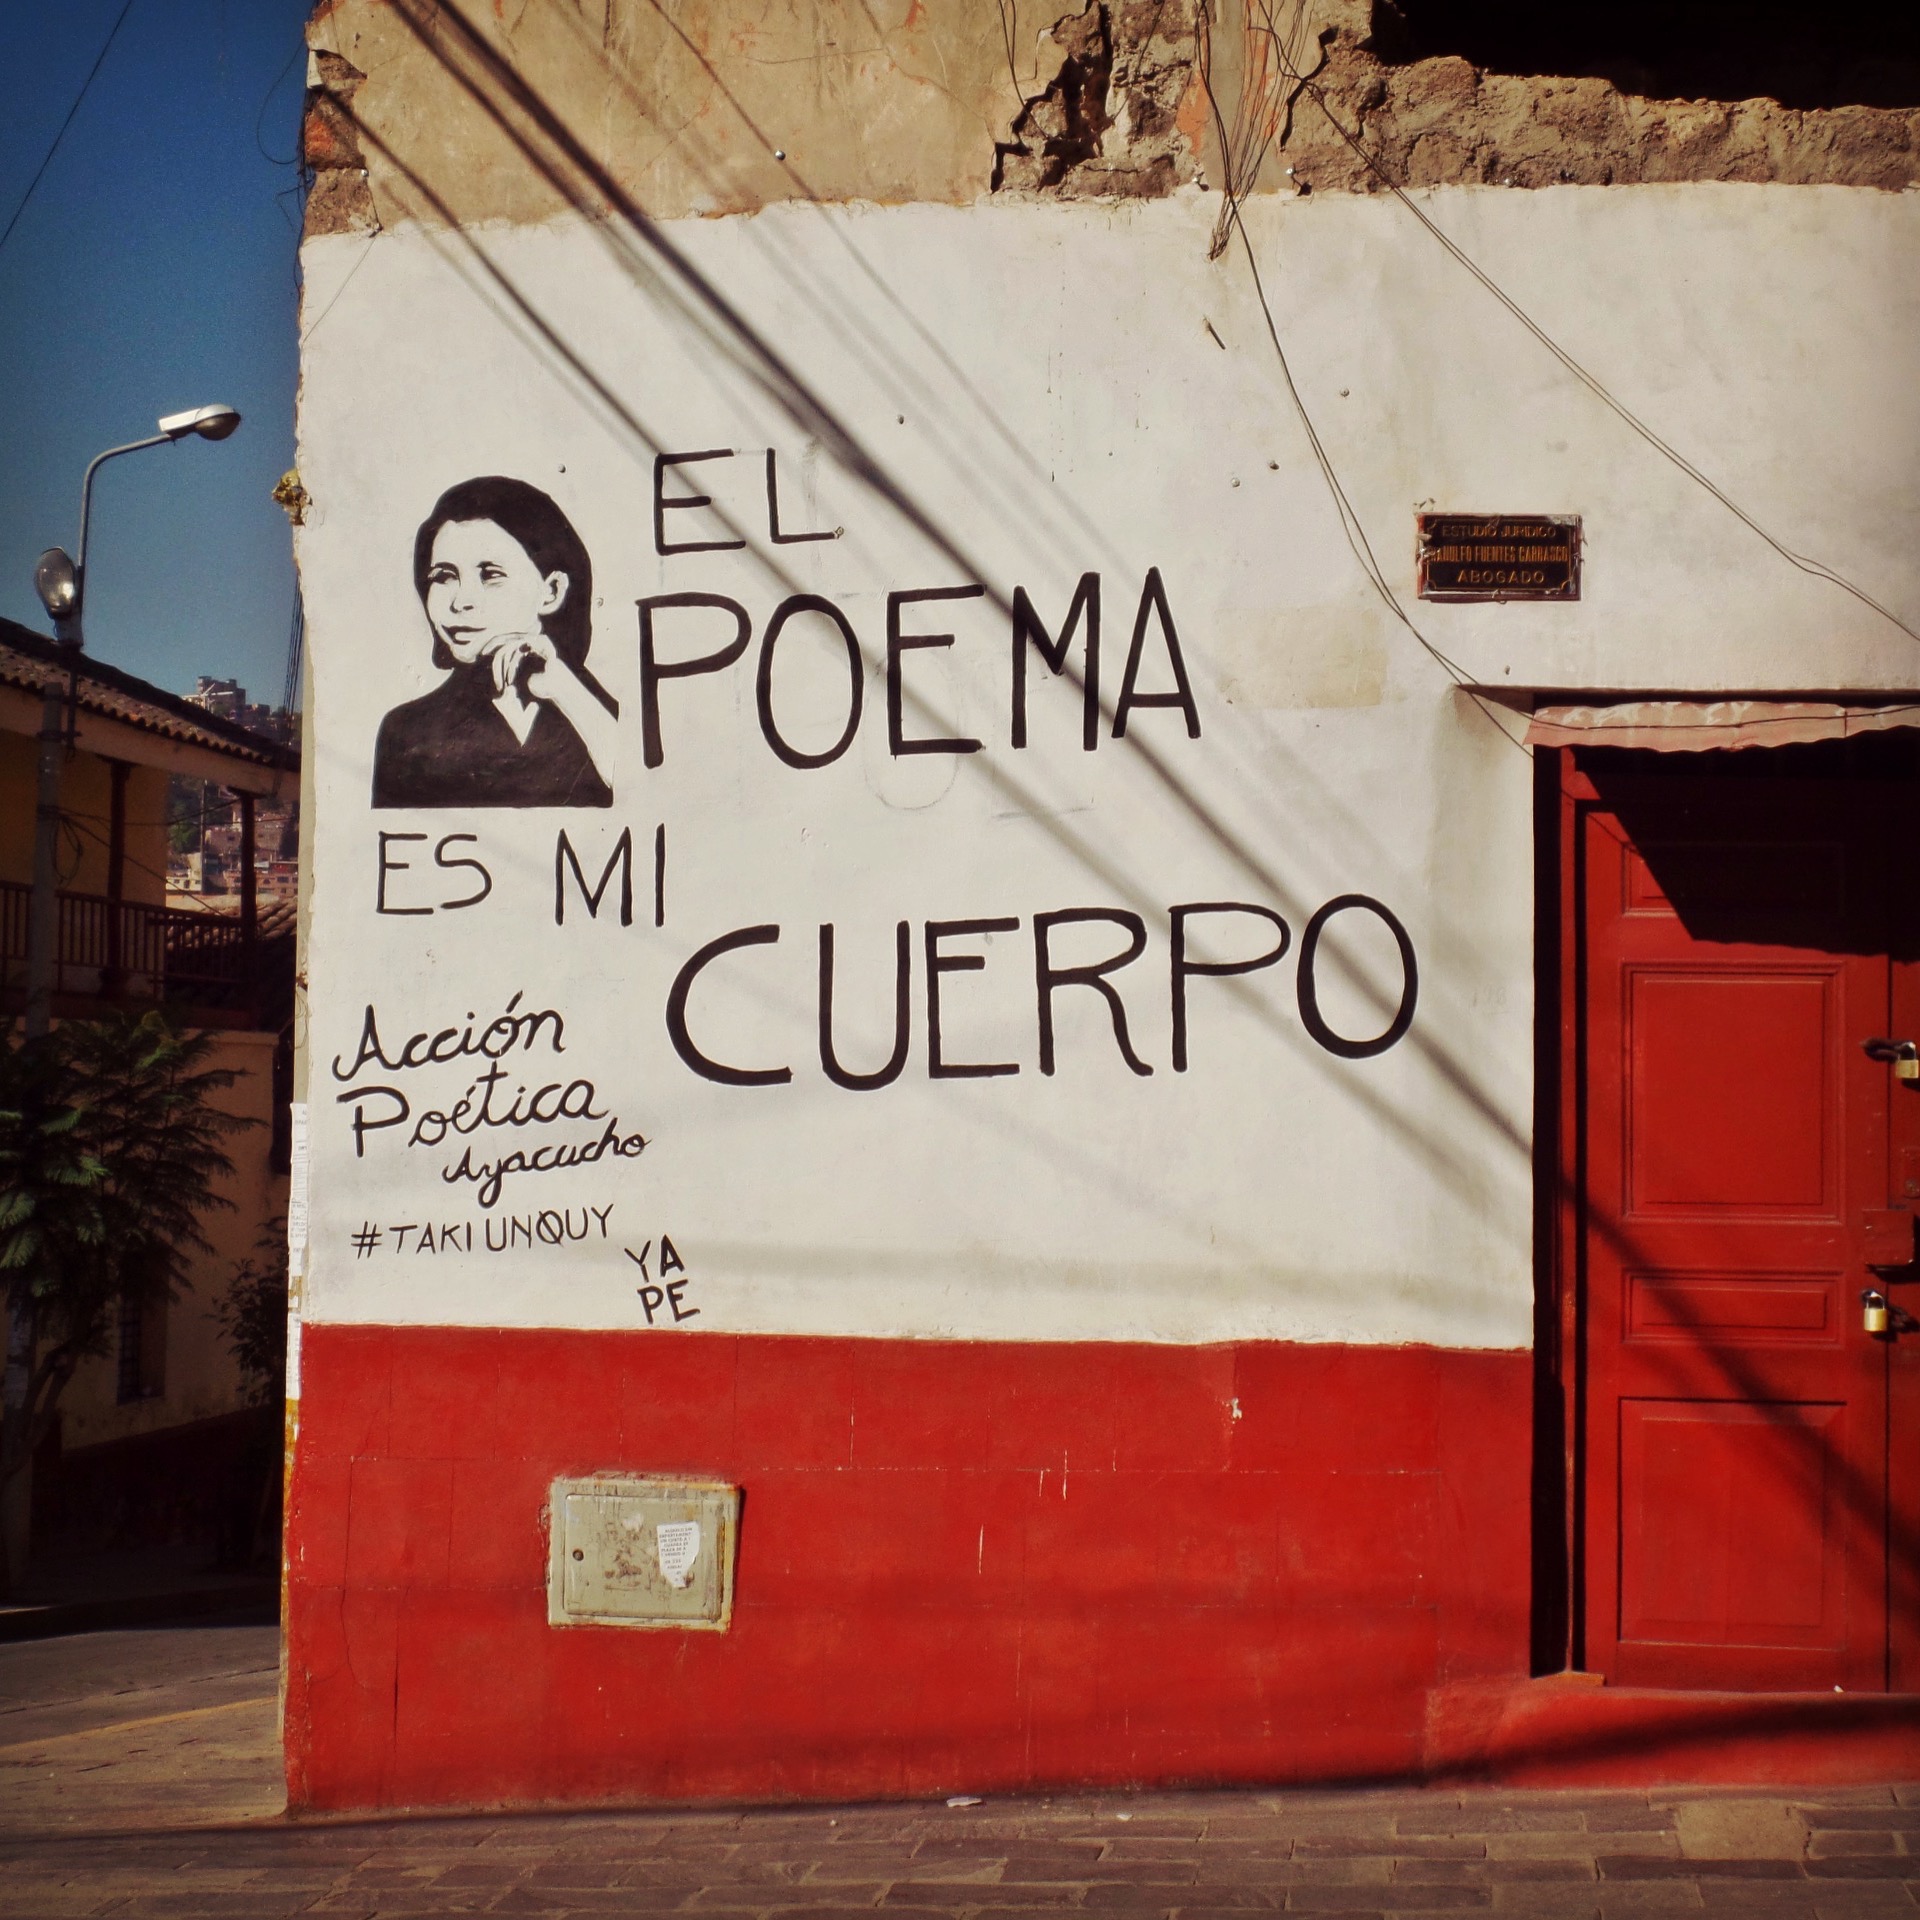 EL
POEMA
ES MI
CUERPO
Acción
Poética
Ayacucho
#TAKI UNQUY
YA
PE
ESTUDIO JURIDICO
FUENTES CARRASCO
ABOGADO